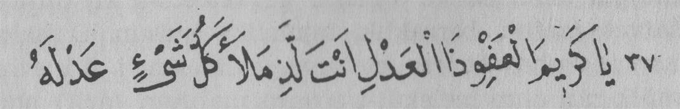 ٣٧ يَا كَرِيمَ الْعَفْوِ ذَا الْعَدْلِ اَنْتَ لَّذِ مَلَأَ كُلَّ شَىْءٍ عَدْلَهُ